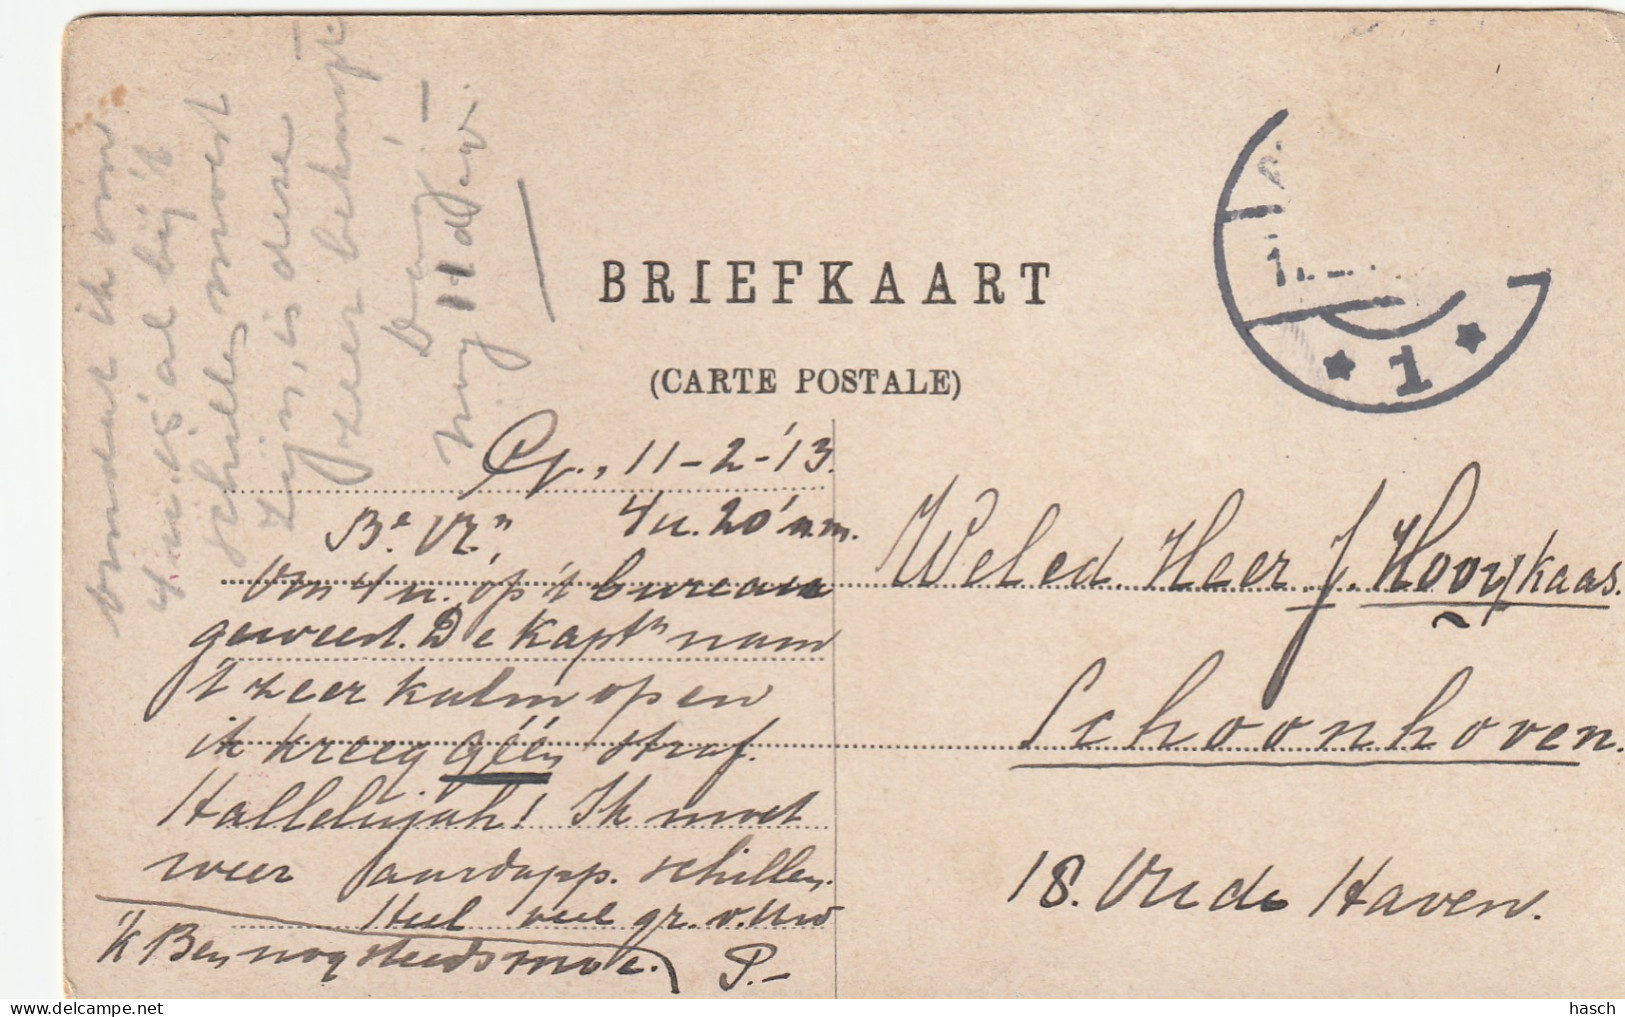 BRIEFKAART
(CARTE POSTALE)
1
11-2-'13.
4 u. 20' n.m.
Be Vr.n,
Om 4 u. op 't bureau
geweest. De Kaptn nam
't zeer kalm op en
ik kreeg géén straf.
Hallelujah! Ik moet
weer aardapp. schillen.
Heel veel gr. v. Uw
P.-
'k Ben nog steeds moe.
omdat ik om
4 u. al bij 't
schillen moest
zijn, is deze
zeer beknopt.
Dáág
nog 11 d
Weled. Heer J. Hooykaas.
Schoonhoven.
18. Oude Haven.
hasch
delcampe.net